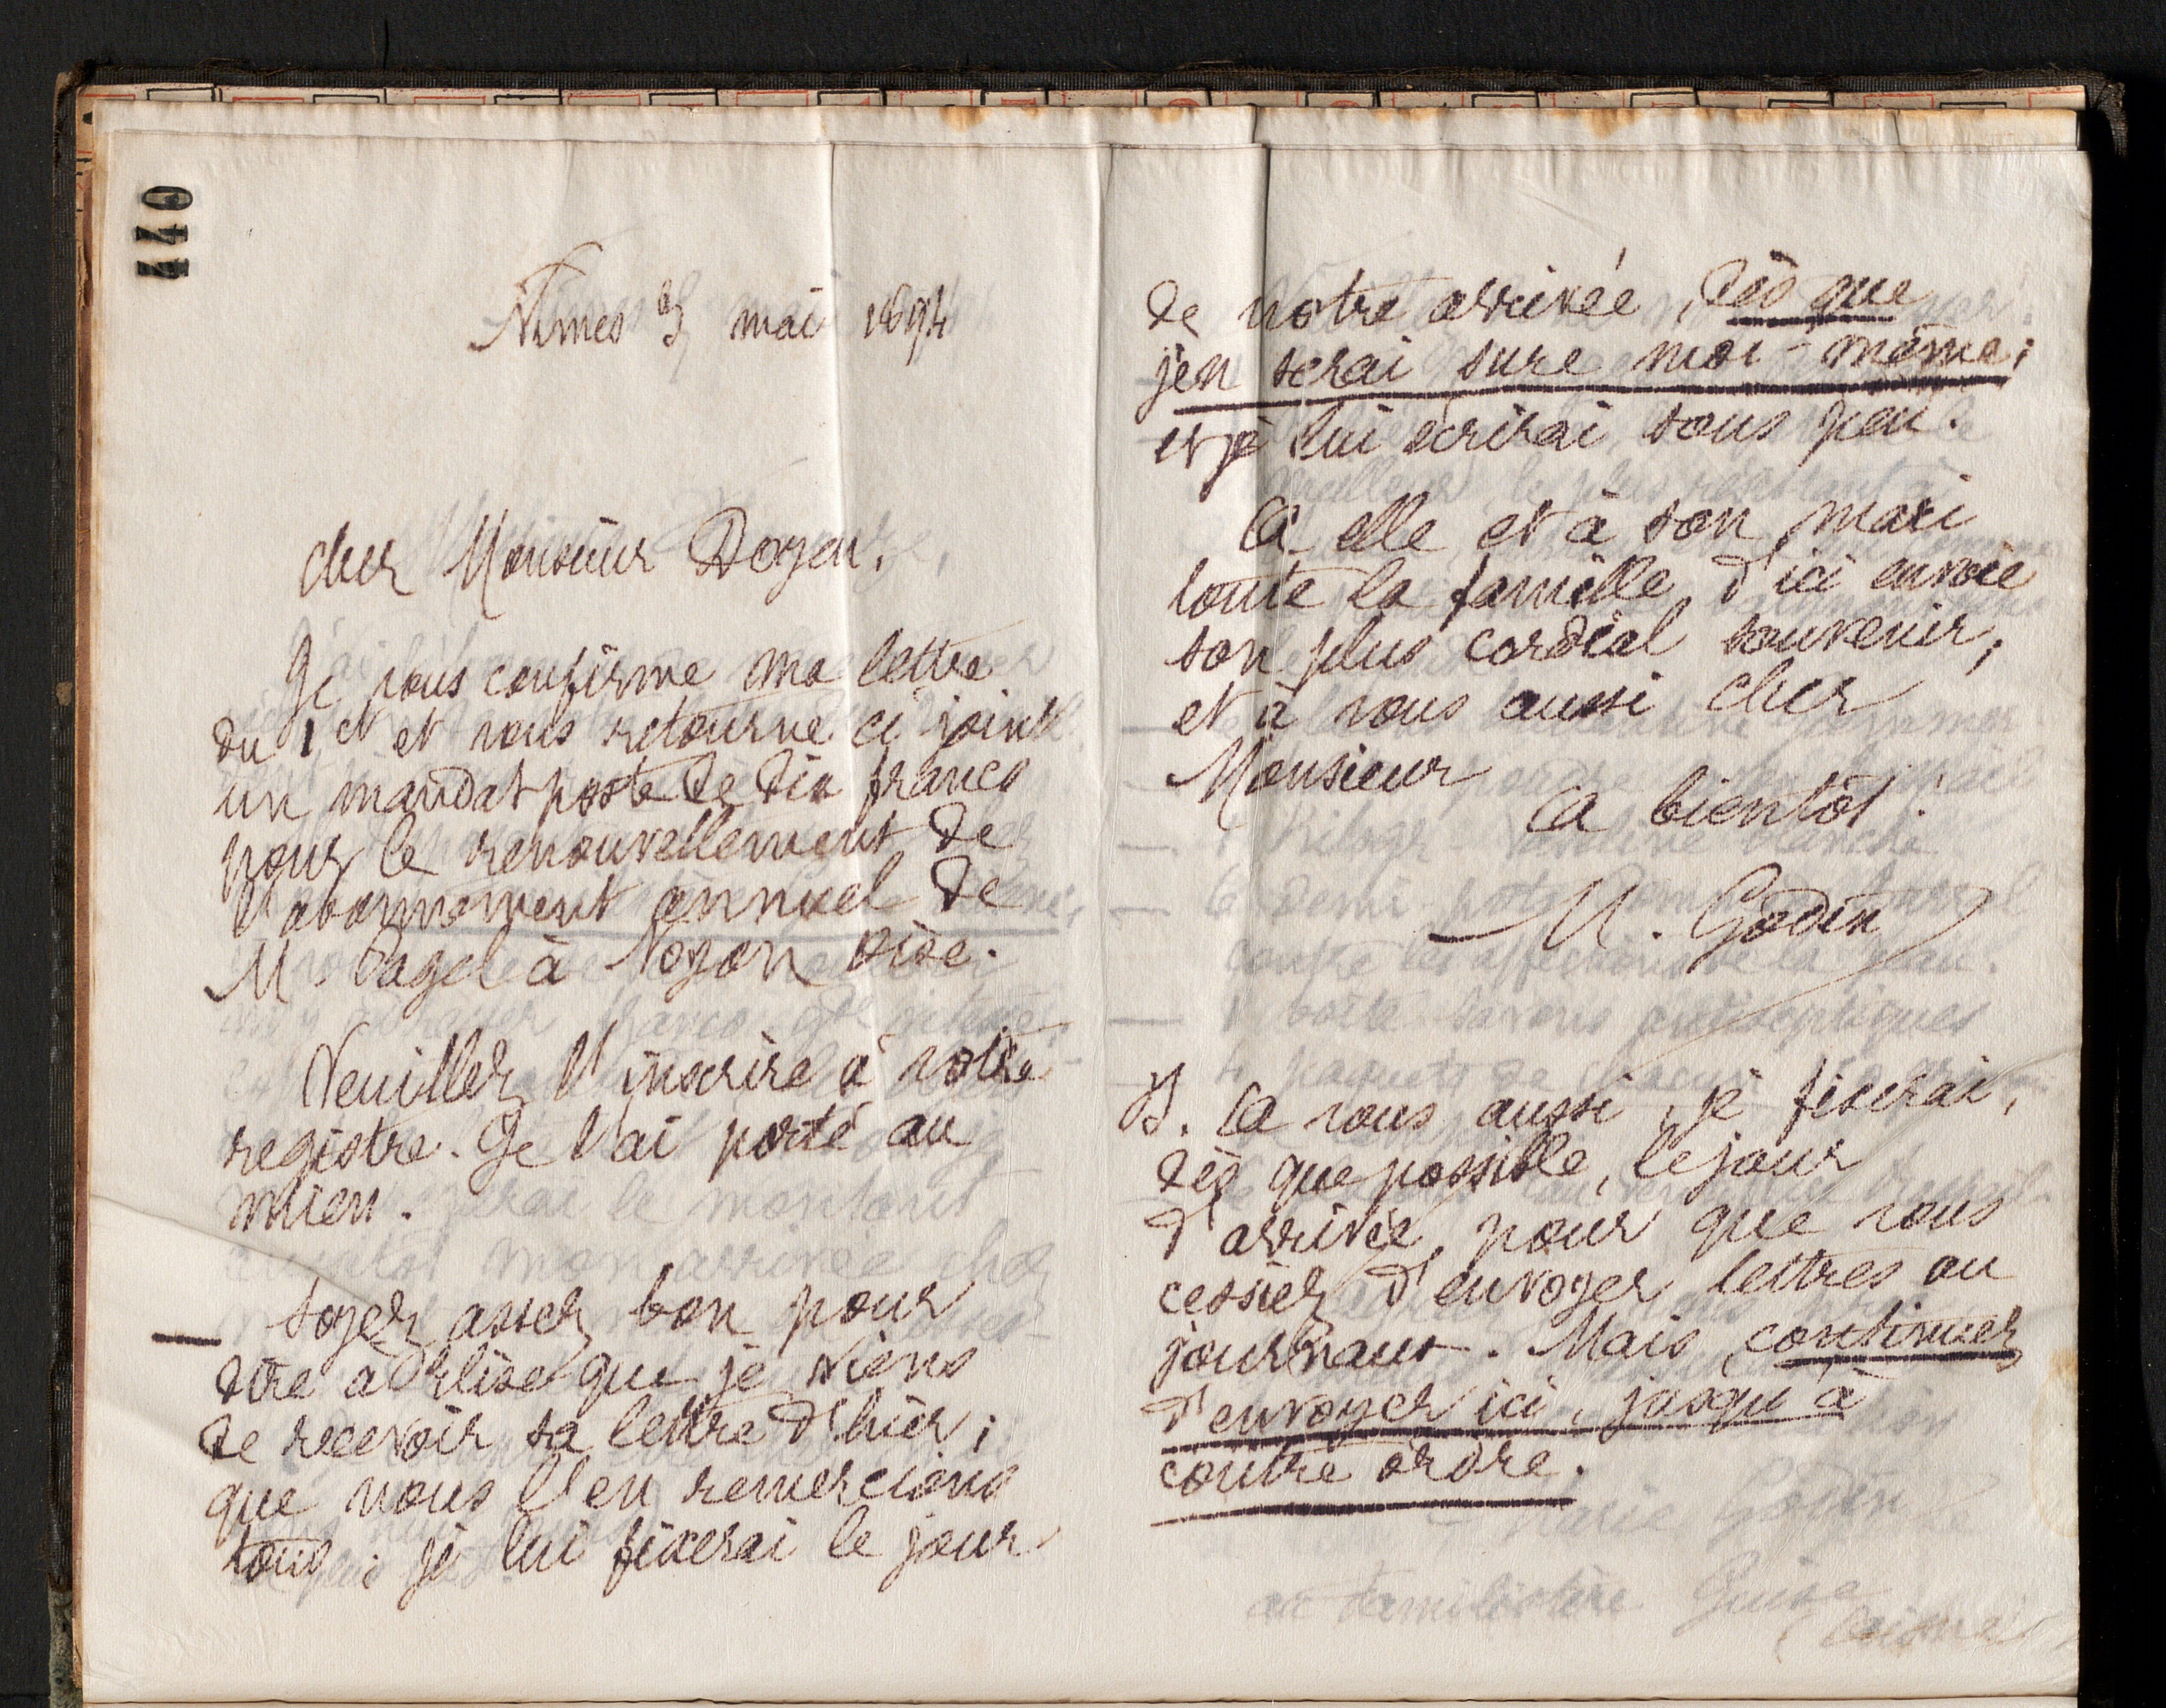 440
Nimes 3 mai 1894
cher Monsieur Doyen,
Je vous confirme ma lettre
du 1er et vous retourne ci joint
un mandat poste de dix francs
pour le renouvellement de
l'abonnement annuel de
M. Pagel à Noyon oise.
Veuillez l'inscrire à votre
registre. Je l'ai porté au
mien.
— Soyez assez bon pour
dire à Elise que je viens
de recevoir sa lettre d'hier;
que nous l'en remercions
tous; je lui fixerai le jour
de notre arrivée, dès que
j'en serai sure moi-même;
et je lui écrirai sous peu.
A elle et à son mari
toute la famille d'ici envoie
son plus cordial souvenir,
et à vous aussi cher
Monsieur
A bientôt!
M. Godin
A vous aussi, je fixerai,
dès que possible, le jour
d'arrivée, pour que vous
cessiez d'envoyer lettres ou
journaux. Mais continuez
d'envoyer ici, jusqu'à
contre ordre.